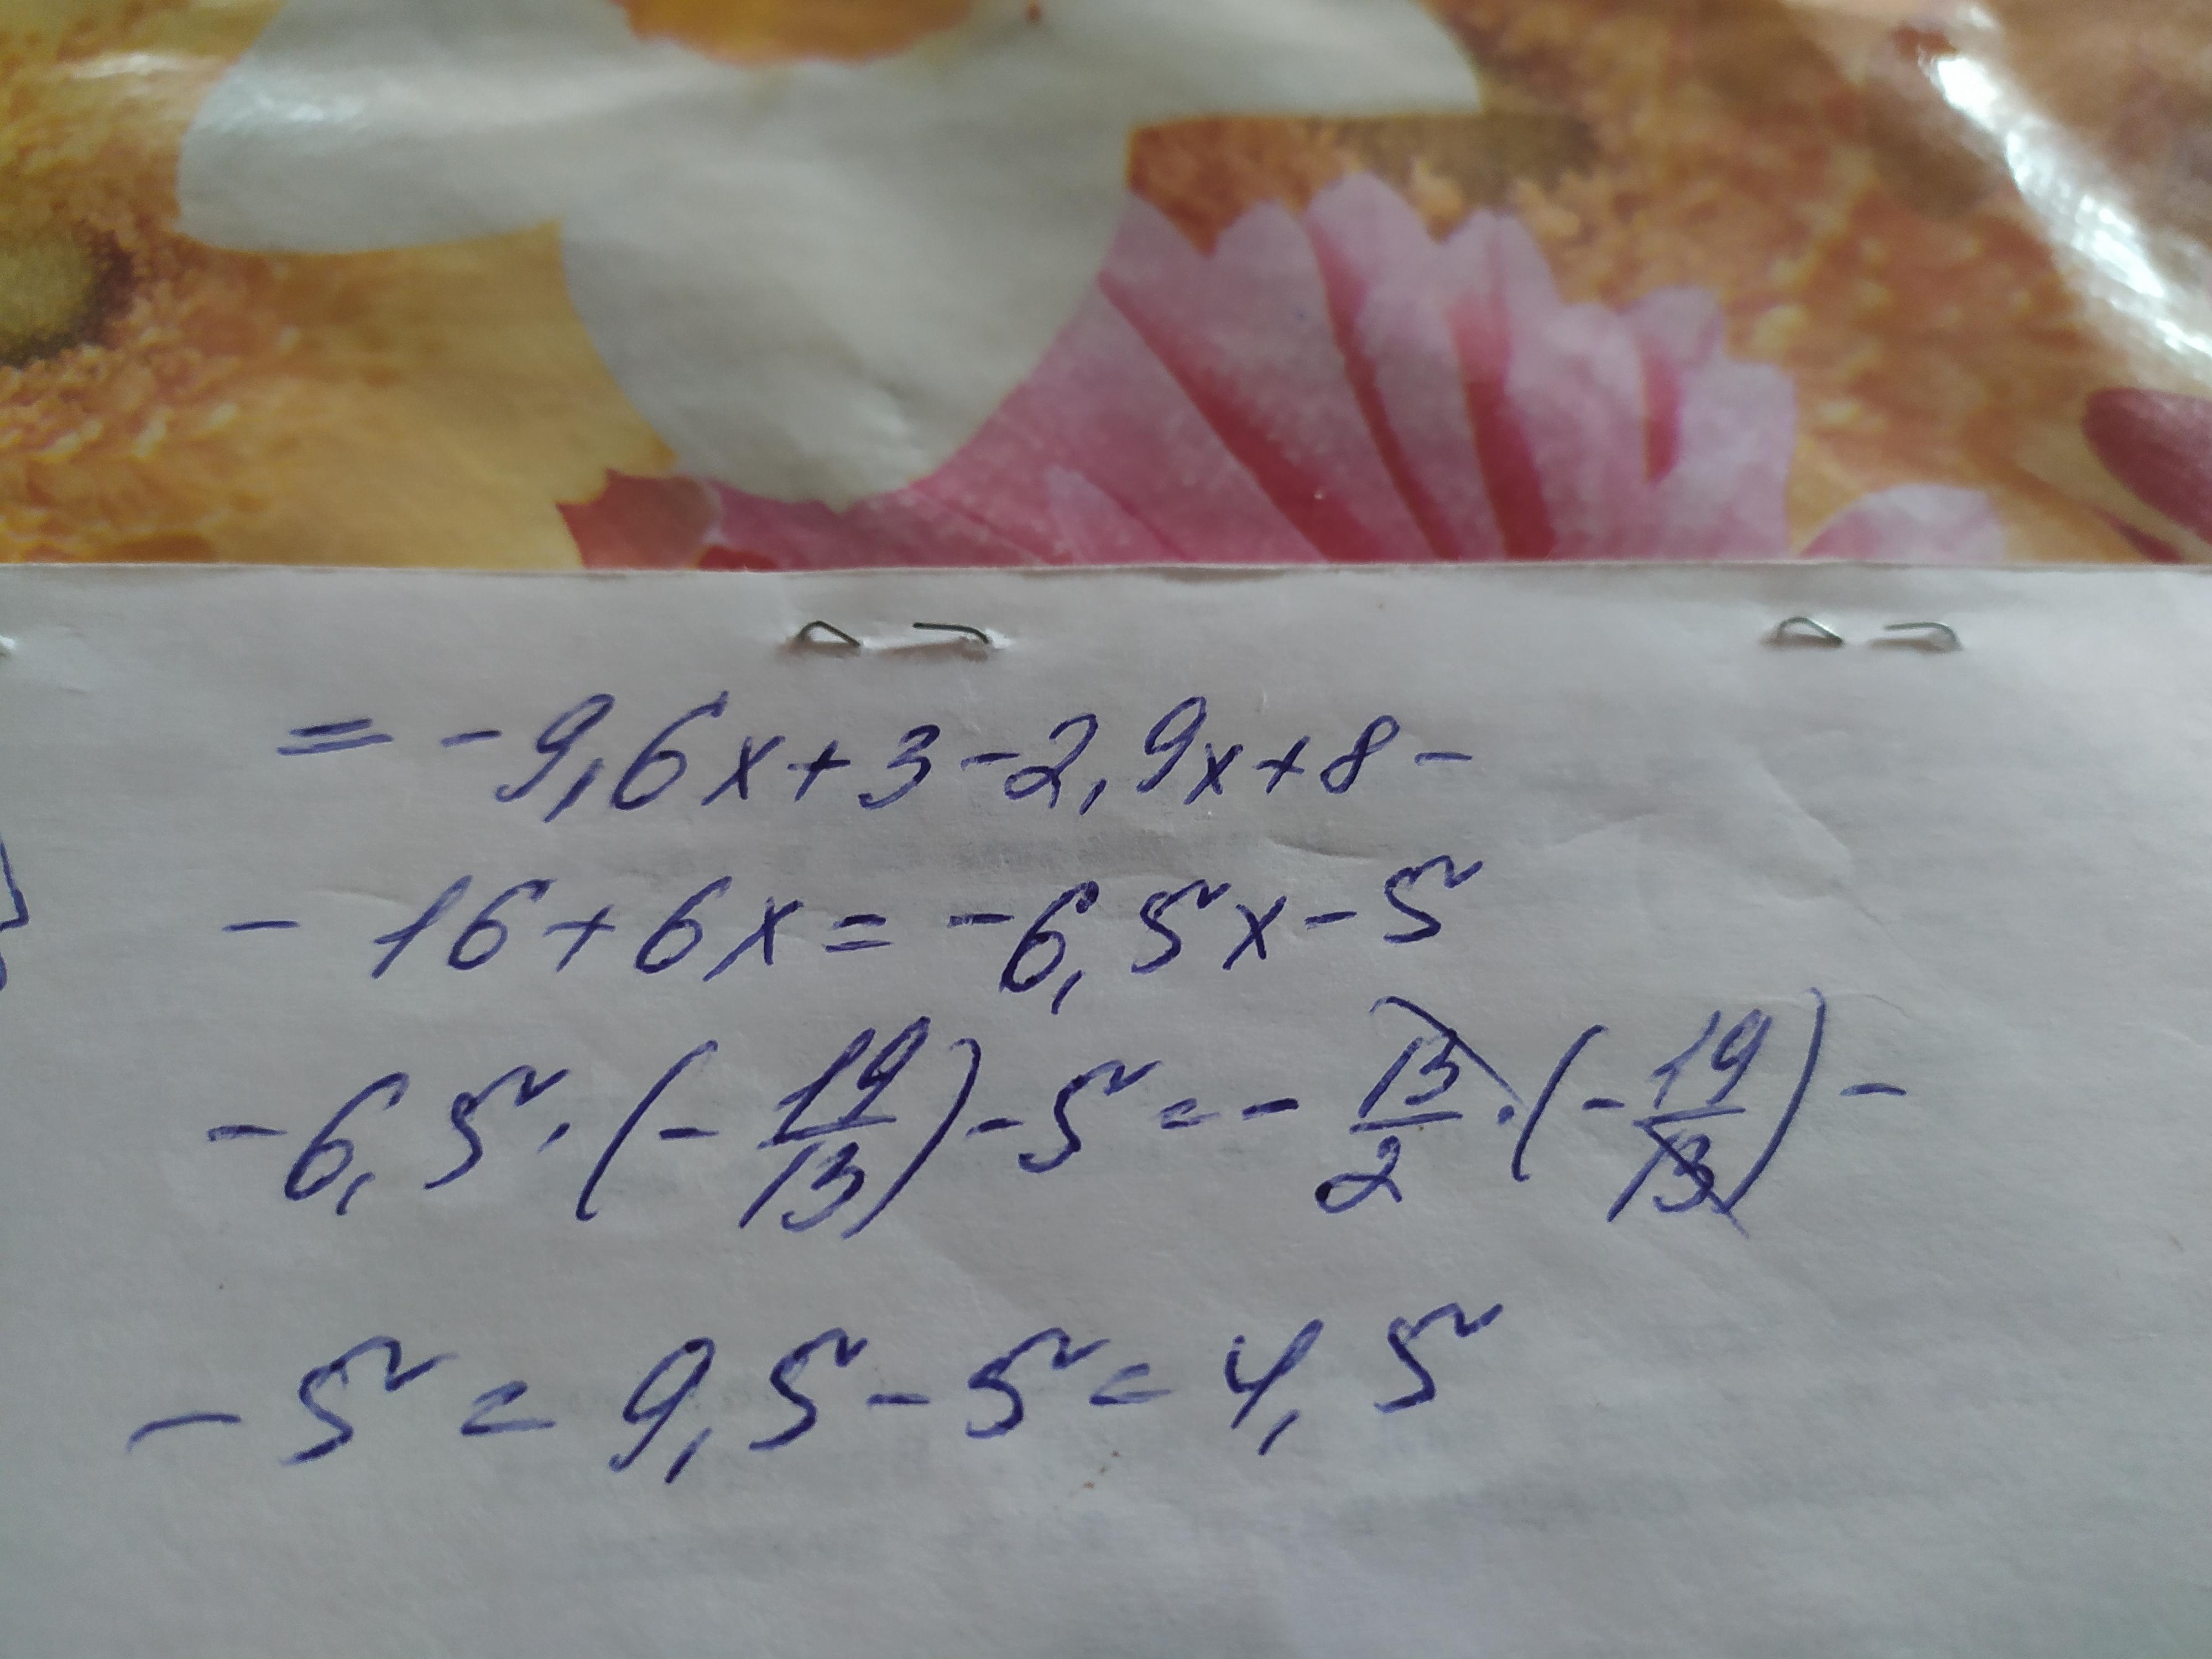 = -9,6x+3-2,9x+8-
- 16+6x= -6,5x-5
-6,5·(-19/13)-5=-13/2·(-19/13)-
-5=9,5-5=4,5